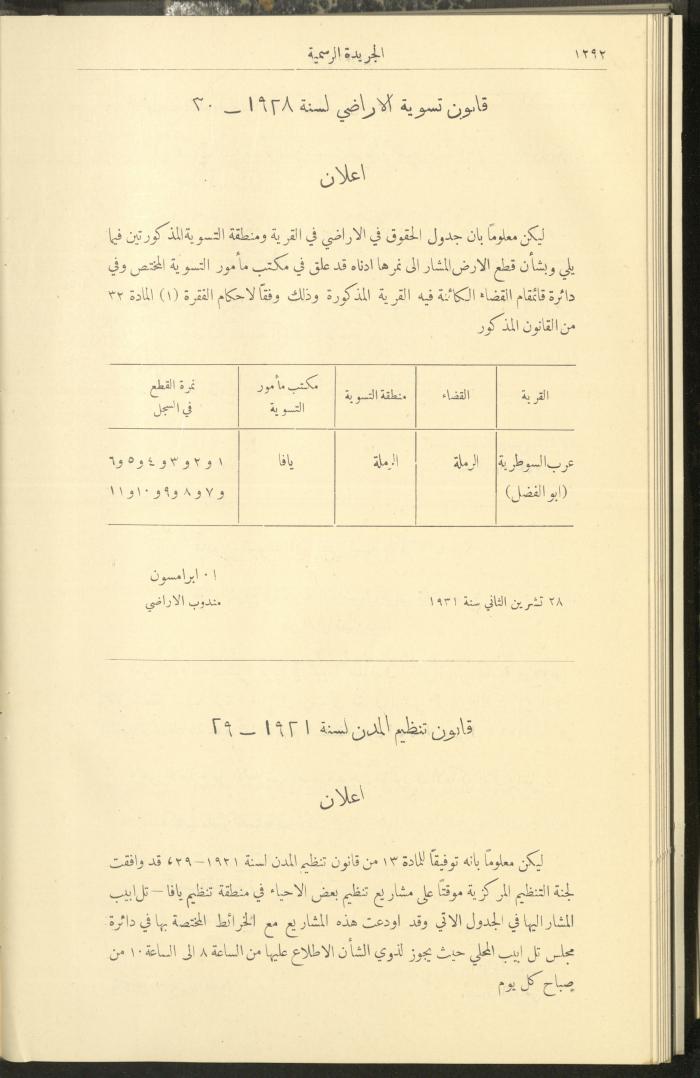 ١٢٩٢
الجريدة الرسمية
قانون تسوية الاراضي لسنة ١٩٢٨ – ٣٠
اعلان
ليكن معلومًا بان جدول الحقوق في الاراضي في القرية ومنطقة التسوية المذكورتين فيما
يلي وبشأن قطع الارض المشار الى نمرها ادناه قد علق في مكتب مأمور التسوية المختص وفي
دائرة قائمقام القضاء الكائنة فيه القرية المذكورة وذلك وفقًا لاحكام الفقرة (١) المادة ٣٢
من القانون المذكور
القرية
القضاء
منطقة التسوية
مكتب مأمور
التسوية
نمرة القطع
في السجل
عرب السوطرية
(ابو الفضل)
الرملة
الرملة
يافا
١ و ٢ و ٣ و ٤ و ٥ و ٦
و ٧ و ٨ و ٩ و ١٠ و ١١
٢٨ تشرين الثاني سنة ١٩٣١
ا٠ ابرامسون
مندوب الاراضي
قانون تنظيم المدن لسنة ١٩٢١ – ٢٩
اعلان
ليكن معلومًا بانه توفيقًا للمادة ١٣ من قانون تنظيم المدن لسنة ١٩٢١–٢٩، قد وافقت
لجنة التنظيم المركزية موقتًا على مشاريع تنظيم بعض الاحياء في منطقة تنظيم يافا – تل ابيب
المشار اليها في الجدول الاتي وقد اودعت هذه المشاريع مع الخرائط المختصة بها في دائرة
مجلس تل ابيب المحلي حيث يجوز لذوي الشأن الاطلاع عليها من الساعة ٨ الى الساعة ١٠ من
صباح كل يوم